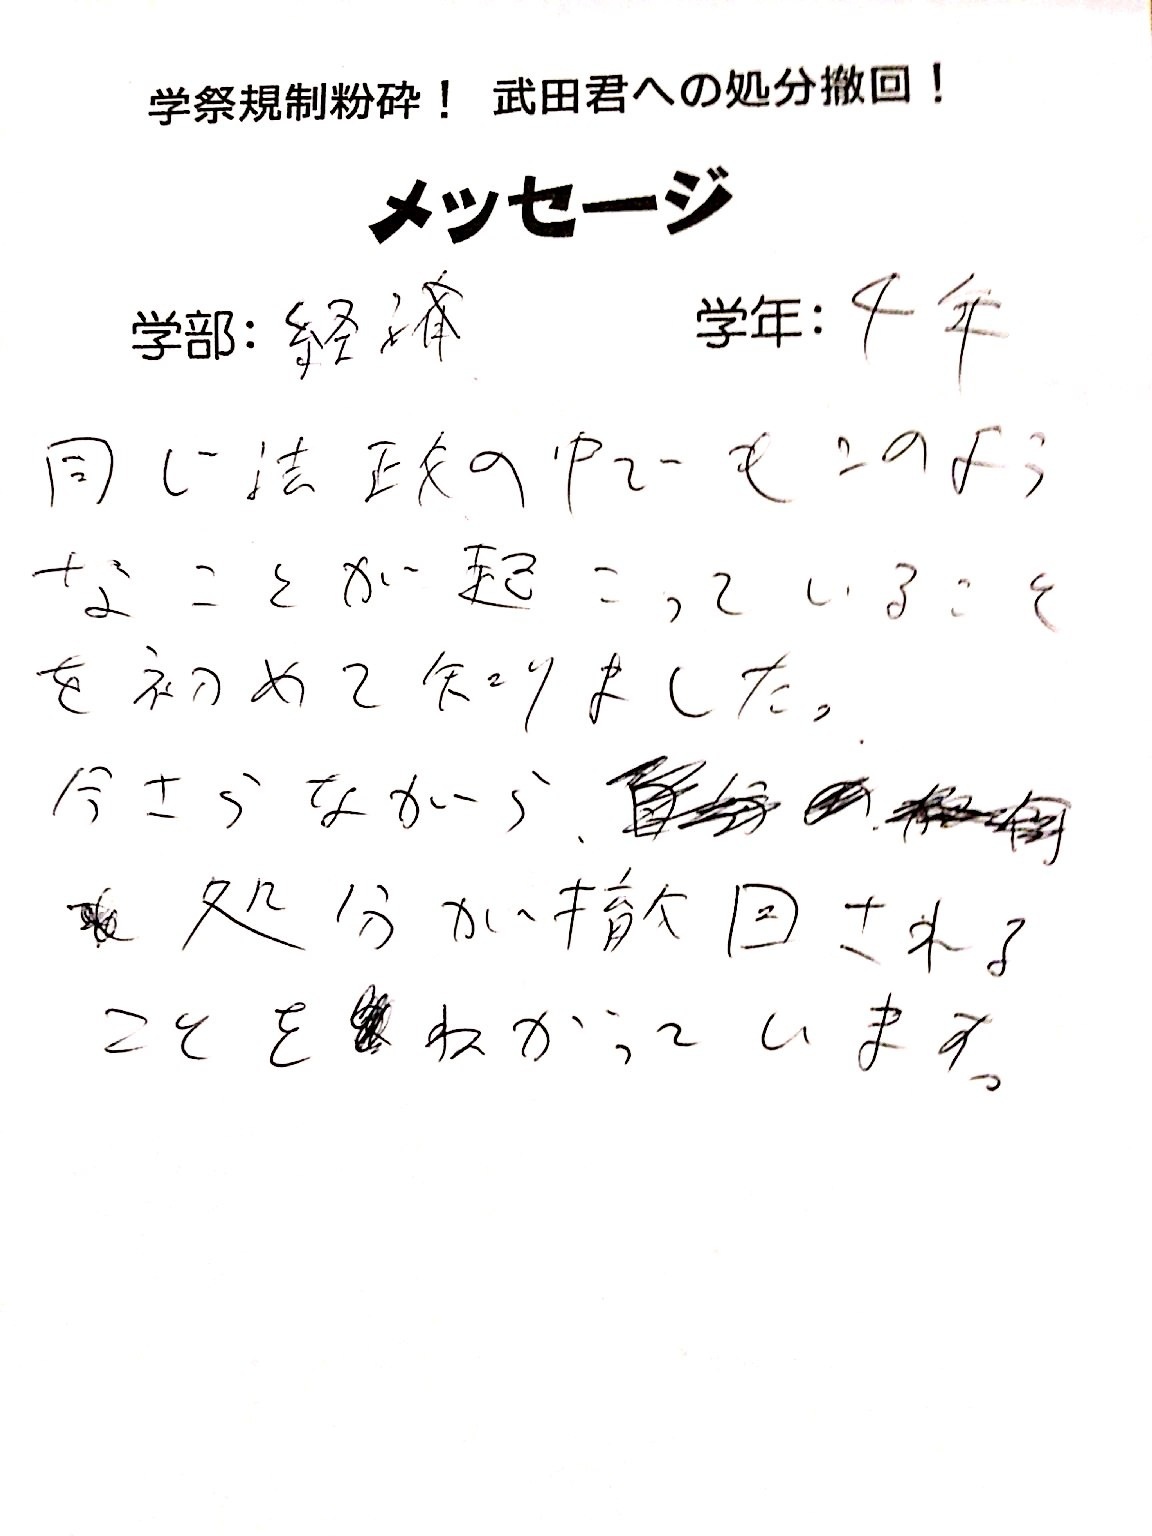 学祭規制粉砕！ 武田君への処分撤回！
メッセージ
学部：経済 学年：4年
同じ法政の中でもこのよう
なことが起こっていること
を初めて知りました。
今さらながら、
処分が撤回される
ことをねがっています。